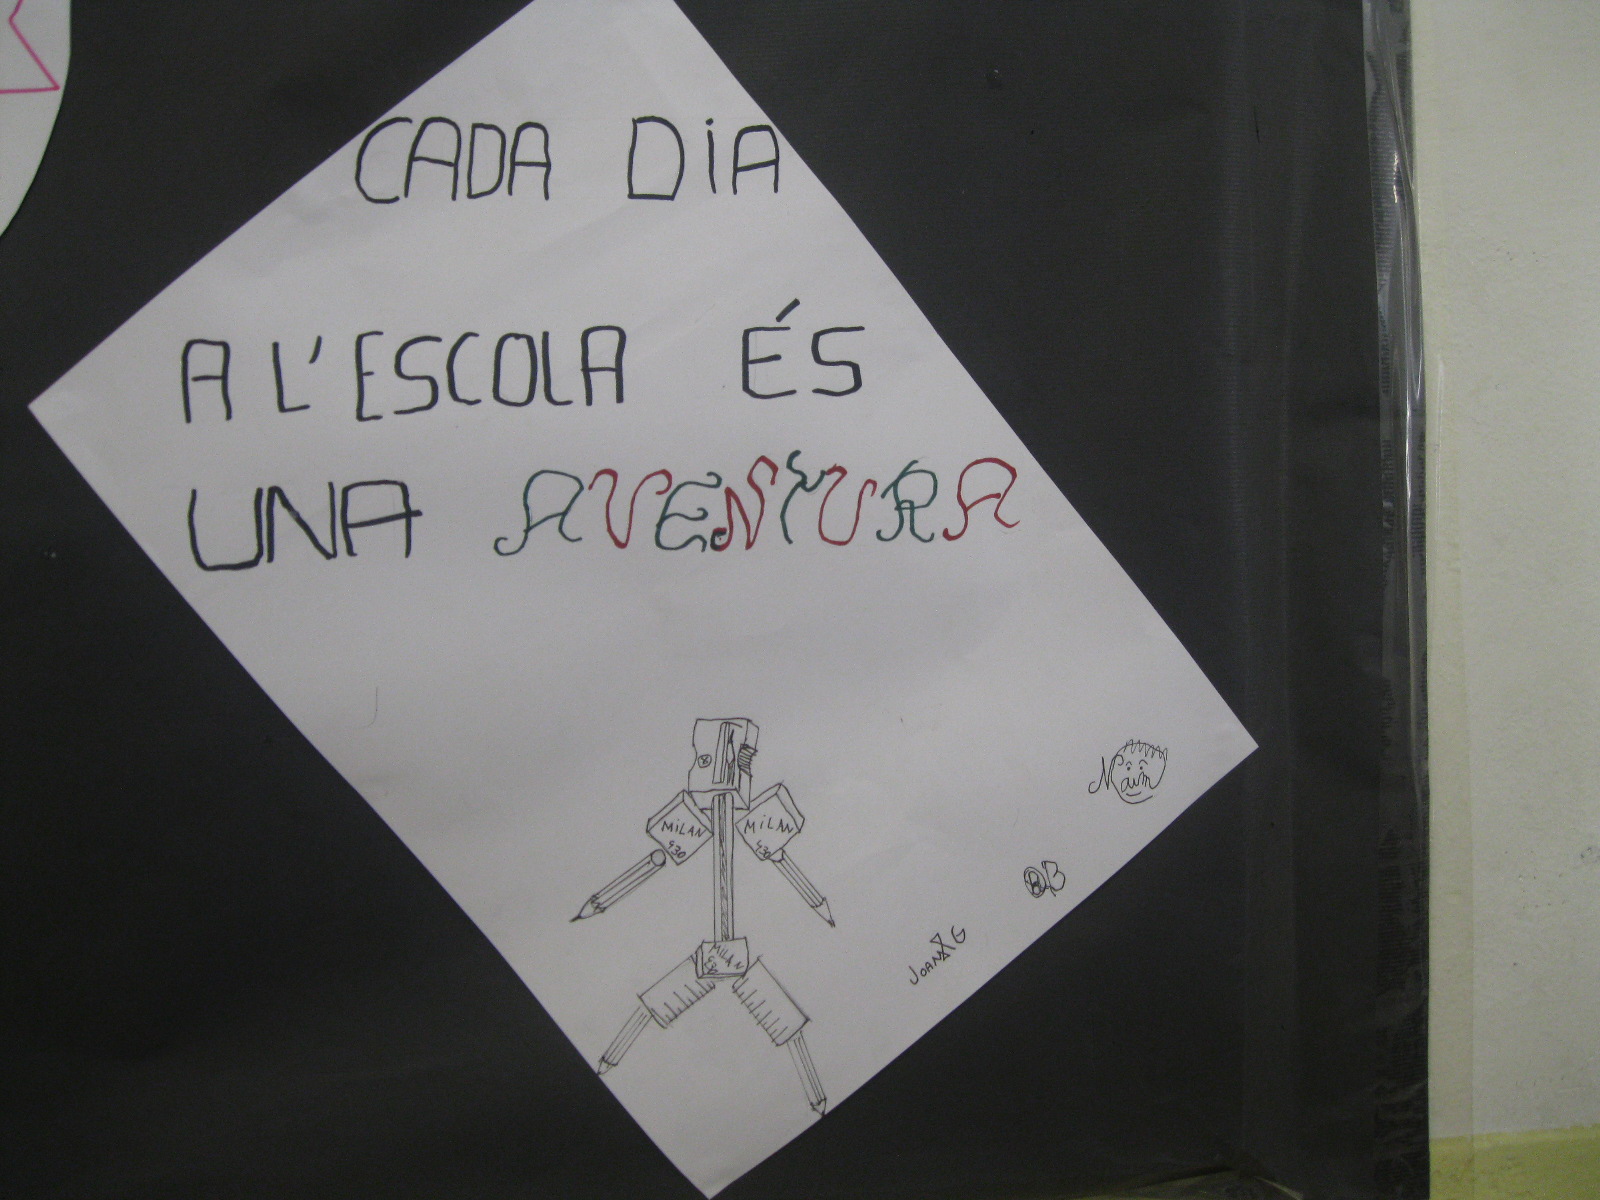 CADA DIA
A L'ESCOLA ÉS
UNA AVENTURA
MILAN
430
MILAN
430
MILAN
430
Naim
B
JOAN G